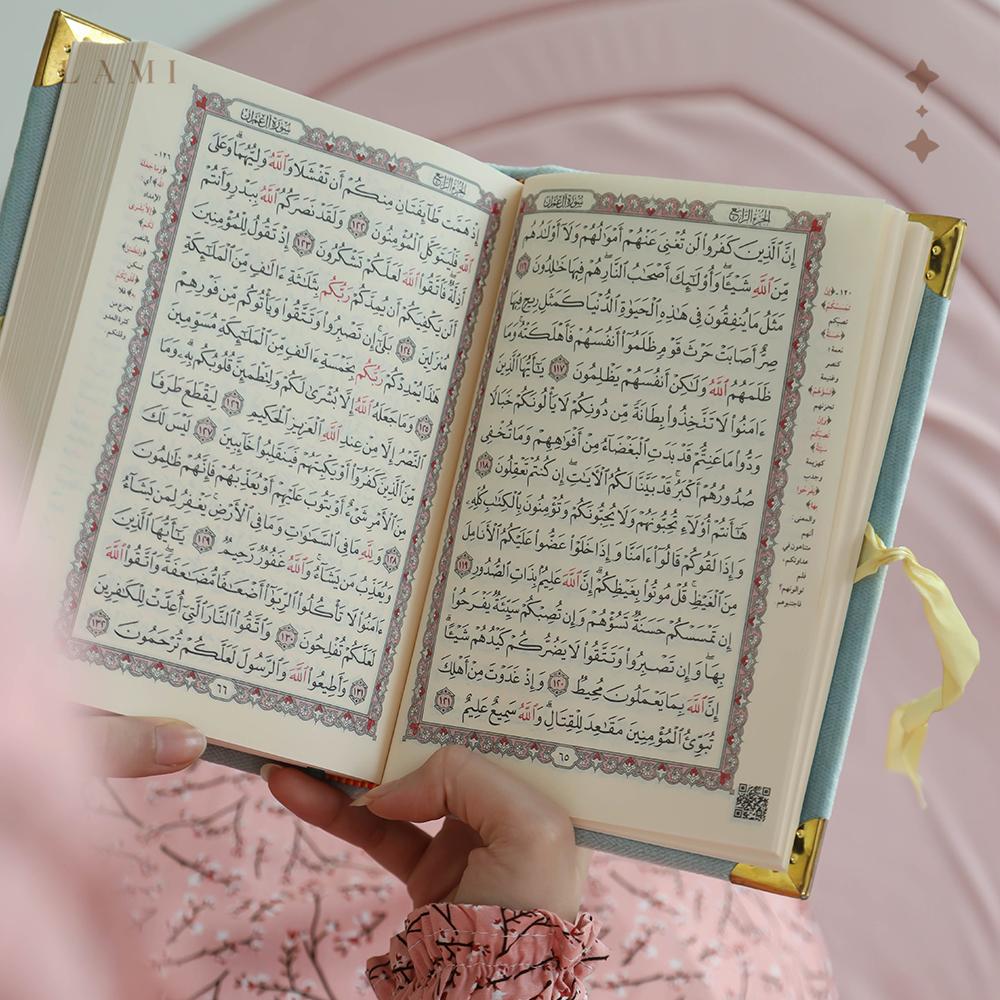 LAMI
سورة آل عمران
الجزء الرابع
إِنَّ ٱلَّذِينَ كَفَرُوا۟ لَن تُغْنِىَ عَنْهُمْ أَمْوَٰلُهُمْ وَلَآ أَوْلَٰدُهُم
مِّنَ ٱللَّهِ شَيْـًٔا ۖ وَأُو۟لَٰٓئِكَ أَصْحَٰبُ ٱلنَّارِ ۚ هُمْ فِيهَا خَٰلِدُونَ ١١٦
مَثَلُ مَا يُنفِقُونَ فِى هَٰذِهِ ٱلْحَيَوٰةِ ٱلدُّنْيَا كَمَثَلِ رِيحٍ فِيهَا
صِرٌّ أَصَابَتْ حَرْثَ قَوْمٍ ظَلَمُوٓا۟ أَنفُسَهُمْ فَأَهْلَكَتْهُ ۚ وَمَا
ظَلَمَهُمُ ٱللَّهُ وَلَٰكِنْ أَنفُسَهُمْ يَظْلِمُونَ ١١٧ يَٰٓأَيُّهَا ٱلَّذِينَ
ءَامَنُوا۟ لَا تَتَّخِذُوا۟ بِطَانَةً مِّن دُونِكُمْ لَا يَأْلُونَكُمْ خَبَالًا
وَدُّوا۟ مَا عَنِتُّمْ قَدْ بَدَتِ ٱلْبَغْضَآءُ مِنْ أَفْوَٰهِهِمْ وَمَا تُخْفِى
صُدُورُهُمْ أَكْبَرُ ۚ قَدْ بَيَّنَّا لَكُمُ ٱلْءَايَٰتِ ۖ إِن كُنتُمْ تَعْقِلُونَ ١١٨
هَٰٓأَنتُمْ أُو۟لَآءِ تُحِبُّونَهُمْ وَلَا يُحِبُّونَكُمْ وَتُؤْمِنُونَ بِٱلْكِتَٰبِ كُلِّهِۦ
وَإِذَا لَقُوكُمْ قَالُوٓا۟ ءَامَنَّا وَإِذَا خَلَوْا۟ عَضُّوا۟ عَلَيْكُمُ ٱلْأَنَامِلَ
مِنَ ٱلْغَيْظِ ۚ قُلْ مُوتُوا۟ بِغَيْظِكُمْ ۗ إِنَّ ٱللَّهَ عَلِيمٌۢ بِذَاتِ ٱلصُّدُورِ ١١٩
إِن تَمْسَسْكُمْ حَسَنَةٌ تَسُؤْهُمْ وَإِن تُصِبْكُمْ سَيِّئَةٌ يَفْرَحُوا۟
بِهَا ۖ وَإِن تَصْبِرُوا۟ وَتَتَّقُوا۟ لَا يَضُرُّكُمْ كَيْدُهُمْ شَيْـًٔا ۗ
إِنَّ ٱللَّهَ بِمَا يَعْمَلُونَ مُحِيطٌ ١٢٠ وَإِذْ غَدَوْتَ مِنْ أَهْلِكَ
تُبَوِّئُ ٱلْمُؤْمِنِينَ مَقَٰعِدَ لِلْقِتَالِ ۗ وَٱللَّهُ سَمِيعٌ عَلِيمٌ ١٢١
٦٥
سورة آل عمران
الجزء الرابع
إِذْ هَمَّت طَّآئِفَتَانِ مِنكُمْ أَن تَفْشَلَا وَٱللَّهُ وَلِيُّهُمَا ۗ وَعَلَى
ٱللَّهِ فَلْيَتَوَكَّلِ ٱلْمُؤْمِنُونَ ١٢٢ وَلَقَدْ نَصَرَكُمُ ٱللَّهُ بِبَدْرٍ وَأَنتُمْ
أَذِلَّةٌ ۖ فَٱتَّقُوا۟ ٱللَّهَ لَعَلَّكُمْ تَشْكُرُونَ ١٢٣ إِذْ تَقُولُ لِلْمُؤْمِنِينَ
أَلَن يَكْفِيَكُمْ أَن يُمِدَّكُمْ رَبُّكُم بِثَلَٰثَةِ ءَالَٰفٍ مِّنَ ٱلْمَلَٰٓئِكَةِ
مُنزَلِينَ ١٢٤ بَلَىٰٓ ۚ إِن تَصْبِرُوا۟ وَتَتَّقُوا۟ وَيَأْتُوكُم مِّن فَوْرِهِمْ
هَٰذَا يُمْدِدْكُمْ رَبُّكُم بِخَمْسَةِ ءَالَٰفٍ مِّنَ ٱلْمَلَٰٓئِكَةِ مُسَوِّمِينَ
١٢٥ وَمَا جَعَلَهُ ٱللَّهُ إِلَّا بُشْرَىٰ لَكُمْ وَلِتَطْمَئِنَّ قُلُوبُكُم بِهِۦ ۗ وَمَا
ٱلنَّصْرُ إِلَّا مِنْ عِندِ ٱللَّهِ ٱلْعَزِيزِ ٱلْحَكِيمِ ١٢٦ لِيَقْطَعَ طَرَفًا
مِّنَ ٱلَّذِينَ كَفَرُوٓا۟ أَوْ يَكْبِتَهُمْ فَيَنقَلِبُوا۟ خَآئِبِينَ ١٢٧ لَيْسَ لَكَ
مِنَ ٱلْأَمْرِ شَىْءٌ أَوْ يَتُوبَ عَلَيْهِمْ أَوْ يُعَذِّبَهُمْ فَإِنَّهُمْ ظَٰلِمُونَ
١٢٨ وَلِلَّهِ مَا فِى ٱلسَّمَٰوَٰتِ وَمَا فِى ٱلْأَرْضِ ۚ يَغْفِرُ لِمَن يَشَآءُ
وَيُعَذِّبُ مَن يَشَآءُ ۚ وَٱللَّهُ غَفُورٌ رَّحِيمٌ ١٢٩ يَٰٓأَيُّهَا ٱلَّذِينَ
ءَامَنُوا۟ لَا تَأْكُلُوا۟ ٱلرِّبَوٰٓا۟ أَضْعَٰفًا مُّضَٰعَفَةً ۖ وَٱتَّقُوا۟ ٱللَّهَ
لَعَلَّكُمْ تُفْلِحُونَ ١٣٠ وَٱتَّقُوا۟ ٱلنَّارَ ٱلَّتِىٓ أُعِدَّتْ لِلْكَٰفِرِينَ
١٣١ وَأَطِيعُوا۟ ٱللَّهَ وَٱلرَّسُولَ لَعَلَّكُمْ تُرْحَمُونَ ١٣٢
٦٦